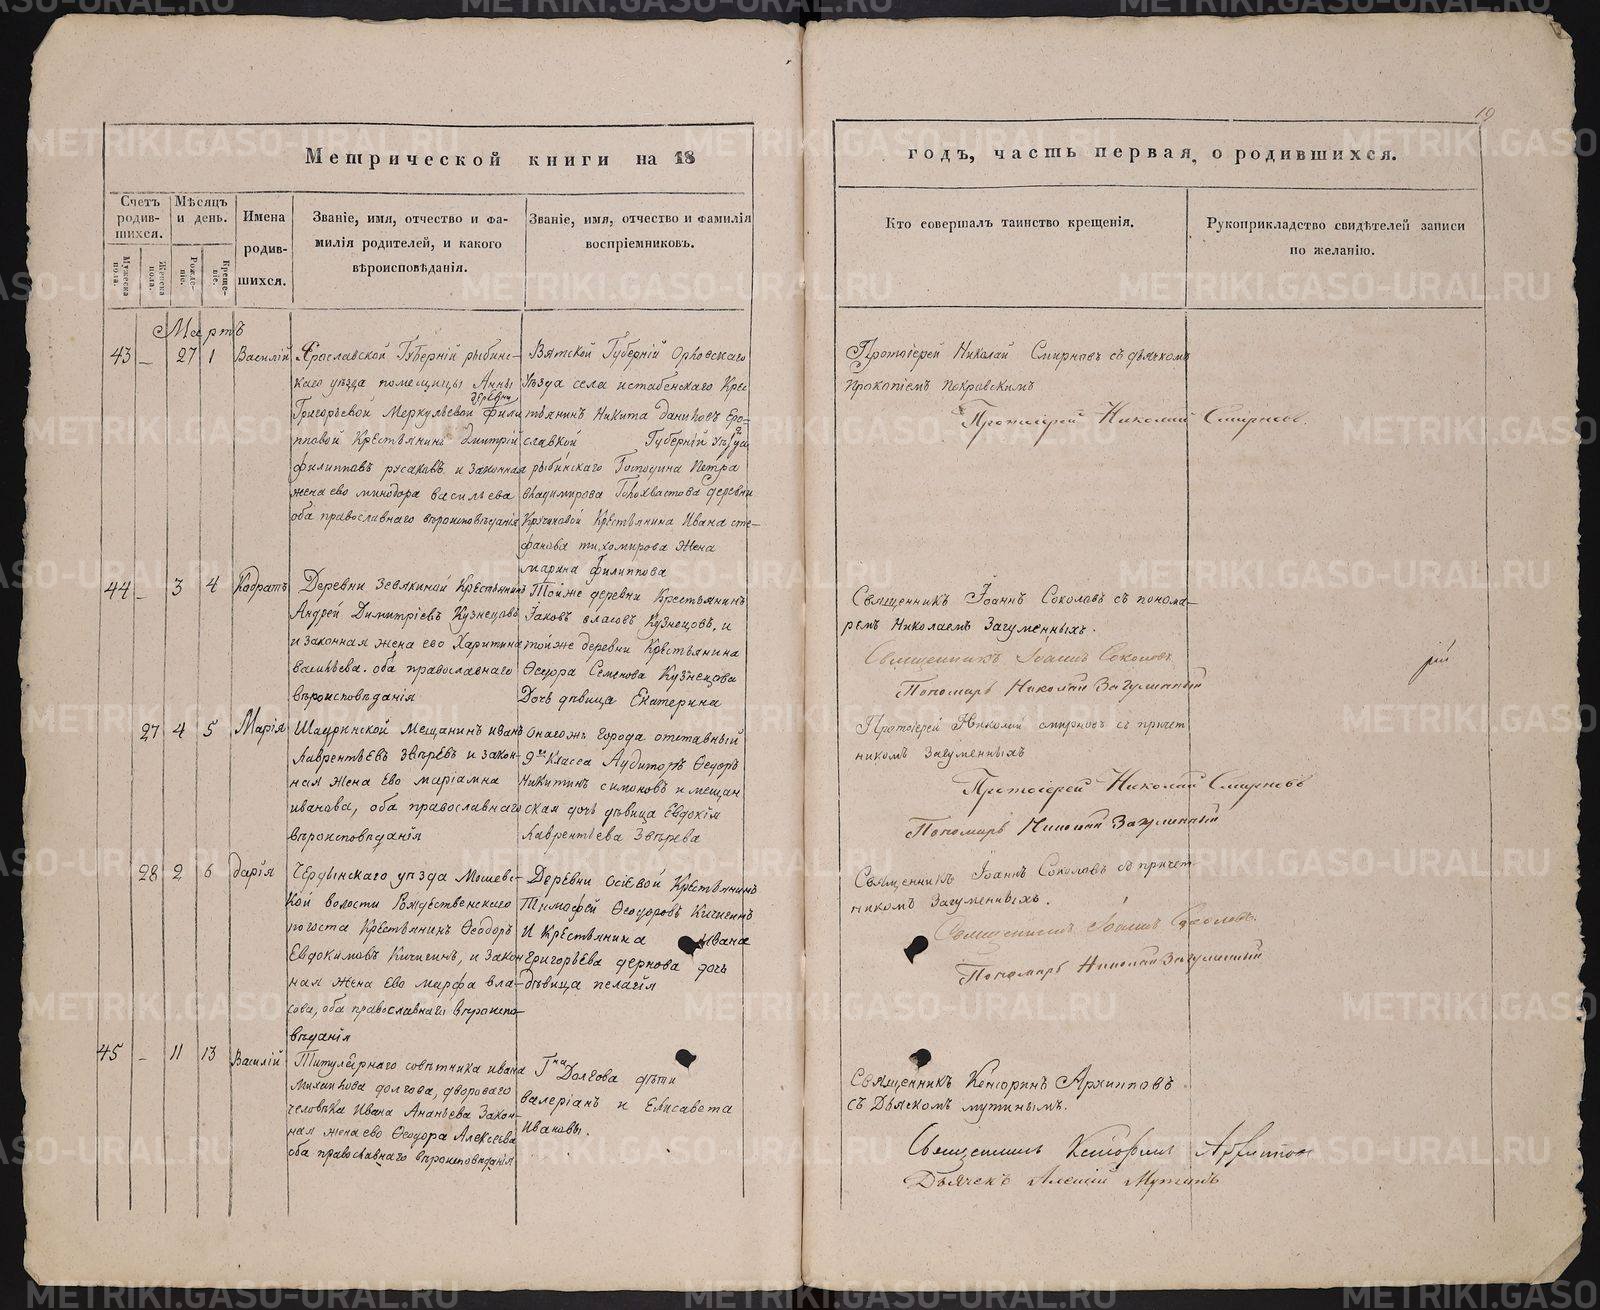 19
Метрической книги на 18
годъ, часть первая, о родившихся.
Счетъ родив-шихся.
Мужеска пола.
Женска пола.
Мѣсяцъ и день.
Рожде-ніе.
Креще-ніе.
Имена родив-шихся.
Званіе, имя, отчество и фа-
милія родителей, и какого
вѣроисповѣданія.
Званіе, имя, отчество и фамилія
воспріемниковъ.
Кто совершалъ таинство крещенія.
Рукоприкладство свидѣтелей записи
по желанію.
Мартъ
43 — 27 1 Василій
Ярославской Губерній рыбинс-
каго уѣзда помещицы Анны
Григорьевой Меркульевой деревни Фили
пповой Крестьянинъ Димитрій
филипповъ русаковъ и законная
жена ево минодора васильева
оба православнаго вѣроисповѣданія
Вятской Губерній Орловскаго
Уѣзда села истобенскаго Крес
тьянинъ Никита даниловъ Еро-
славкой Губерній Уѣзда
рыбинскаго Господина Петра
владимирова Голохвастова деревни
Крестьянина Ивана сте-
фанова тихомирова жена
марина филиппова
Протоіерей Николай Смирновъ съ дьячкомъ
Прокопіемъ Покровскимъ
Протоіерей Николай Смирновъ.
44 — 3 4 Кодратъ
Деревни Зевякиной Крестьянинъ
Андрей Димитріевъ Кузнецовъ
и законная жена ево Харитина
васильева. оба православнаго
вѣроисповѣданія
Тойже деревни Крестьянинъ
Іаковъ власовъ Кузнецовъ, и
тойже деревни Крестьянина
Ѳеодора Семенова Кузнецова
Дочь дѣвица Екатерина
Священникъ Іоаннъ Соколовъ съ понома-
ремъ Николаемъ Загуменныхъ.
Священникъ Іоаннъ Соколовъ
Пономарь Николай Загуменный
рій
27 4 5 Марія
Шадринской Мещанинъ иванъ
Лаврентьевъ Звѣревъ и закон-
ная жена Ево маріамна
иванова, оба православнаго
вѣроисповѣданія
Онагожъ города отставный
9го Класса Аудиторъ Ѳеодоръ
Никитинъ симоновъ и мещан
ская дочь дѣвица Евдокія
Лаврентьева Звѣрева
Протоіерей Николай смирновъ съ причет
никомъ Загуменныхъ
Протоіерей Николай Смирновъ
Пономарь Николай Загуменный
28 2 6 дарія
Чердынскаго уѣзда Мошевс-
кой волости Рождественскаго
погоста Крестьянинъ Ѳеодоръ
Евдокимовъ Кичигинъ, и закон
ная жена Ево марфа вла-
сова, оба православнаго вѣроиспо-
вѣданія
Деревни Осіевой Крестьянинъ
Тимофей Ѳеодоровъ Кичигинъ
И Крестьянина Ивана
Григорьева дернова дочь
дѣвица пелагія
Священникъ Іоаннъ Соколовъ съ причет
никомъ Загуменныхъ.
Священникъ Іоаннъ Соколовъ.
Пономарь Николай Загуменный
45 — 11 13 Василій
Титулярнаго совѣтника ивана
Михаилова долгова, двороваго
человѣка Ивана Ананьева Закон-
ная жена ево Ѳеодора Алексѣева
оба православнаго вѣроисповѣданія
Гна Долгова дѣти
валеріанъ и Елисавета
Ивановы.
Священникъ Кенсоринъ Архиповъ
съ Дьякомъ мутинымъ.
Священникъ Кенсоринъ Архиповъ
Дьячекъ Алексій Мутинъ
METRIKI.GASO-URAL.RU